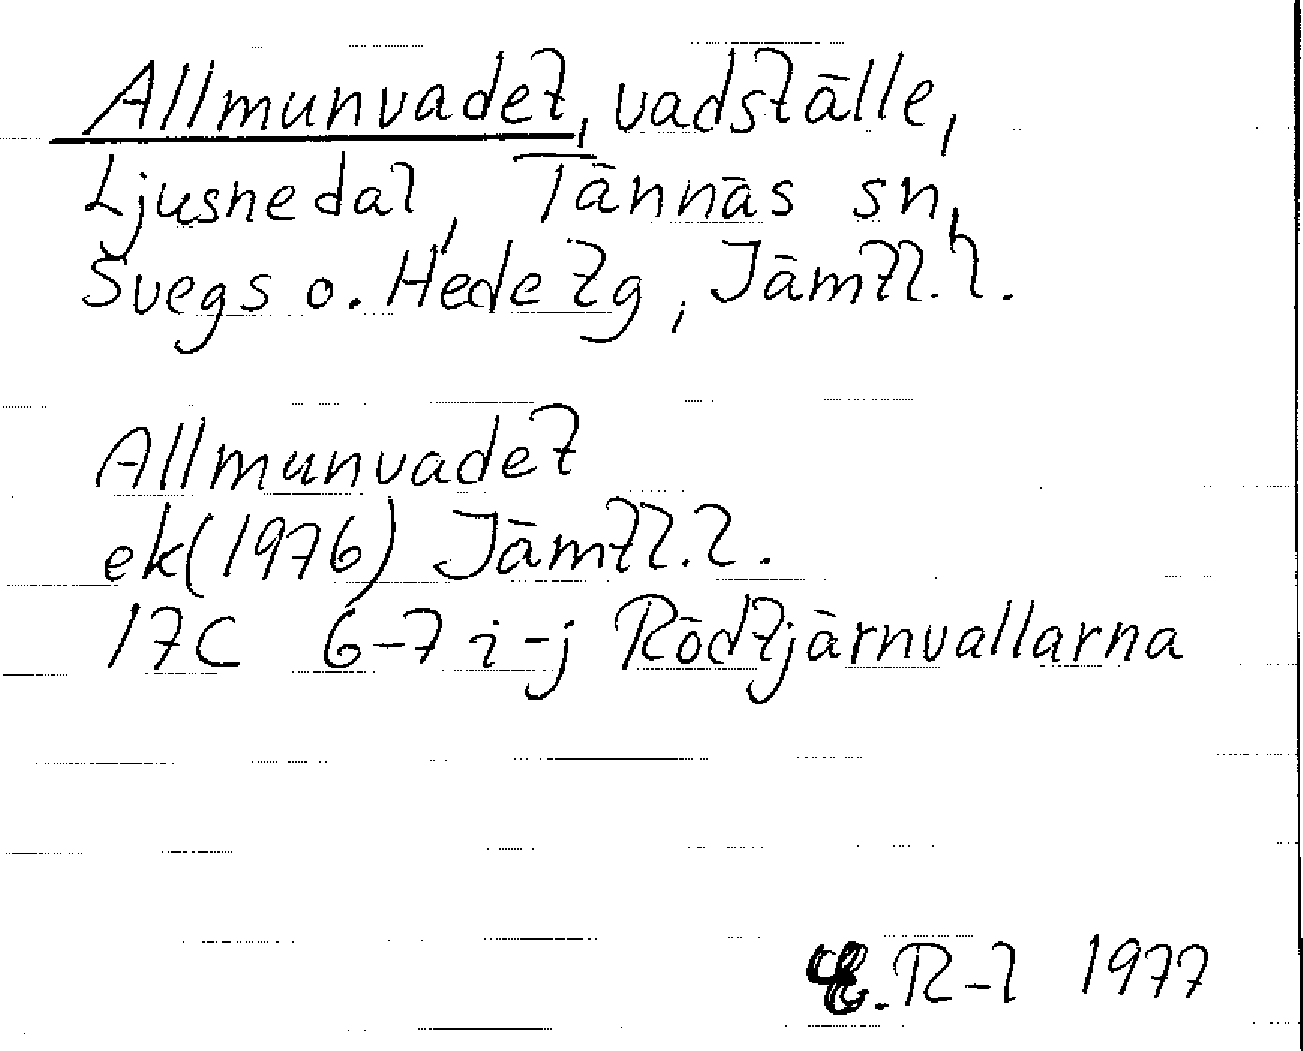 Allmunvadet, vadställe,
Ljusnedal, Tännäs sn,
Svegs o. Hede tg, Jämtl. l.
Allmunvadet
ek(1976) Jämtl. l.
17C 6-7 i-j Rödtjärnvallarna
E. R-l 1977